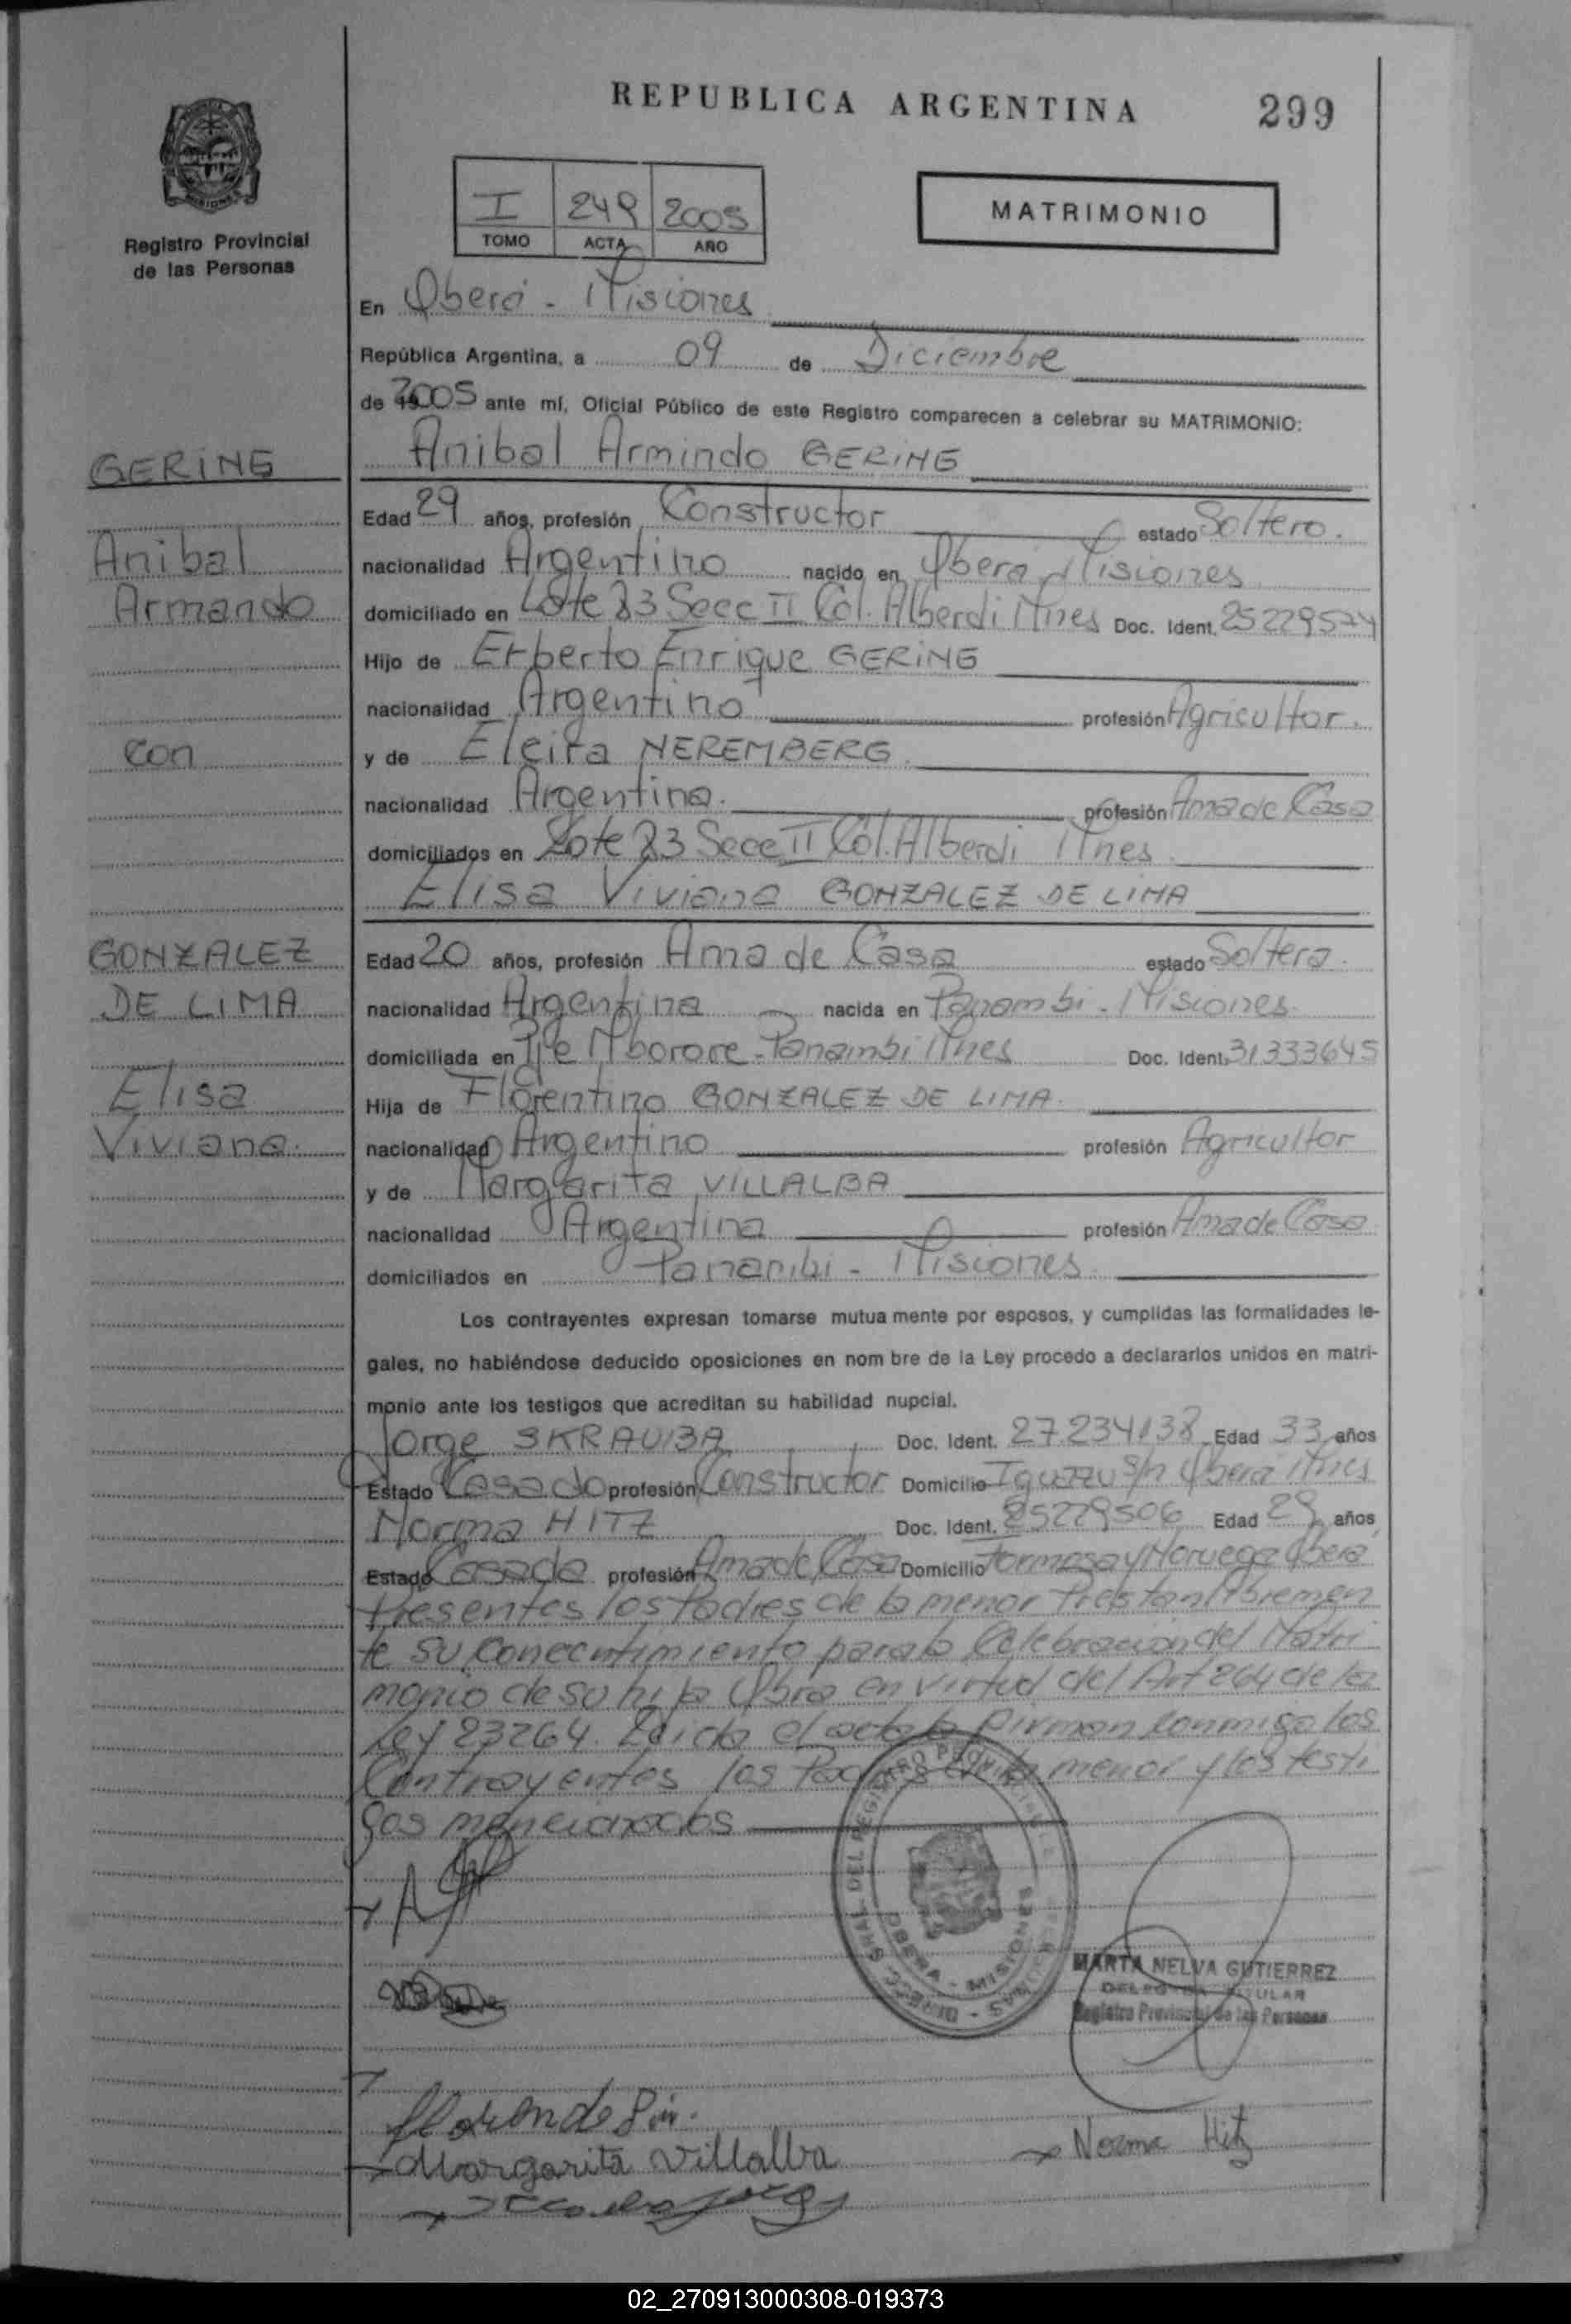 REPUBLICA ARGENTINA
299
Registro Provincial
de las Personas
I 249 2005
TOMO ACTA AÑO
MATRIMONIO
En Oberá - Misiones
República Argentina, a 09 de Diciembre
de 2005 ante mí, Oficial Público de este Registro comparecen a celebrar su MATRIMONIO:
GERING
Anibal Armindo GERING
Edad 29 años, profesión Constructor estado Soltero.
Anibal
nacionalidad Argentino nacido en Oberá Misiones
Armando
domiciliado en Lote 83 Secc II Col. Alberdi Mnes Doc. Ident. 25229574
Hijo de Erberto Enrique GERING
nacionalidad Argentino profesión Agricultor.
con
y de Eleira NEREMBERG
nacionalidad Argentina. profesión Ama de Casa
domiciliados en Lote 83 Secc II Col. Alberdi Mnes
Elisa Viviana GONZALEZ DE LIMA
GONZALEZ
Edad 20 años, profesión Ama de Casa estado Soltera.
DE LIMA
nacionalidad Argentina nacida en Panambi - Misiones.
domiciliada en Pje Mborore - Panambi Mnes Doc. Ident. 31333645
Elisa
Hija de Florentino GONZALEZ DE LIMA.
Viviana.
nacionalidad Argentino profesión Agricultor
y de Margarita VILLALBA
nacionalidad Argentina profesión Ama de Casa
domiciliados en Panambi - Misiones.
Los contrayentes expresan tomarse mutua mente por esposos, y cumplidas las formalidades le-
gales, no habiéndose deducido oposiciones en nom bre de la Ley procedo a declararlos unidos en matri-
monio ante los testigos que acreditan su habilidad nupcial.
Jorge SKRAUBA Doc. Ident. 27.234138 Edad 33 años
Estado Casado profesión Constructor Domicilio Iguazu s/n Oberá Mnes
Norma HITZ Doc. Ident. 25229506 Edad 29 años
Estado Casada profesión Ama de Casa Domicilio Formosa y Noruega Oberá
Presentes los Padres de la menor Prestan libremen
te su conecntimiento para la Celebracion del Matri
monio de su hija Obra en virtud del Art 264 de la
Ley 23264. Leida el acta la firman conmigo los
Contrayentes los Padres de la menor y los testi
gos mencionados
DIRECC. GRAL. DEL REGISTRO PROVINCIAL DE LAS PERSONAS
OBERA - MISIONES
MARTA NELVA GUTIERREZ
DELEGADA TITULAR
Registro Provincial de las Personas
Norma Hitz
Margarita Villalba
02_270913000308-019373